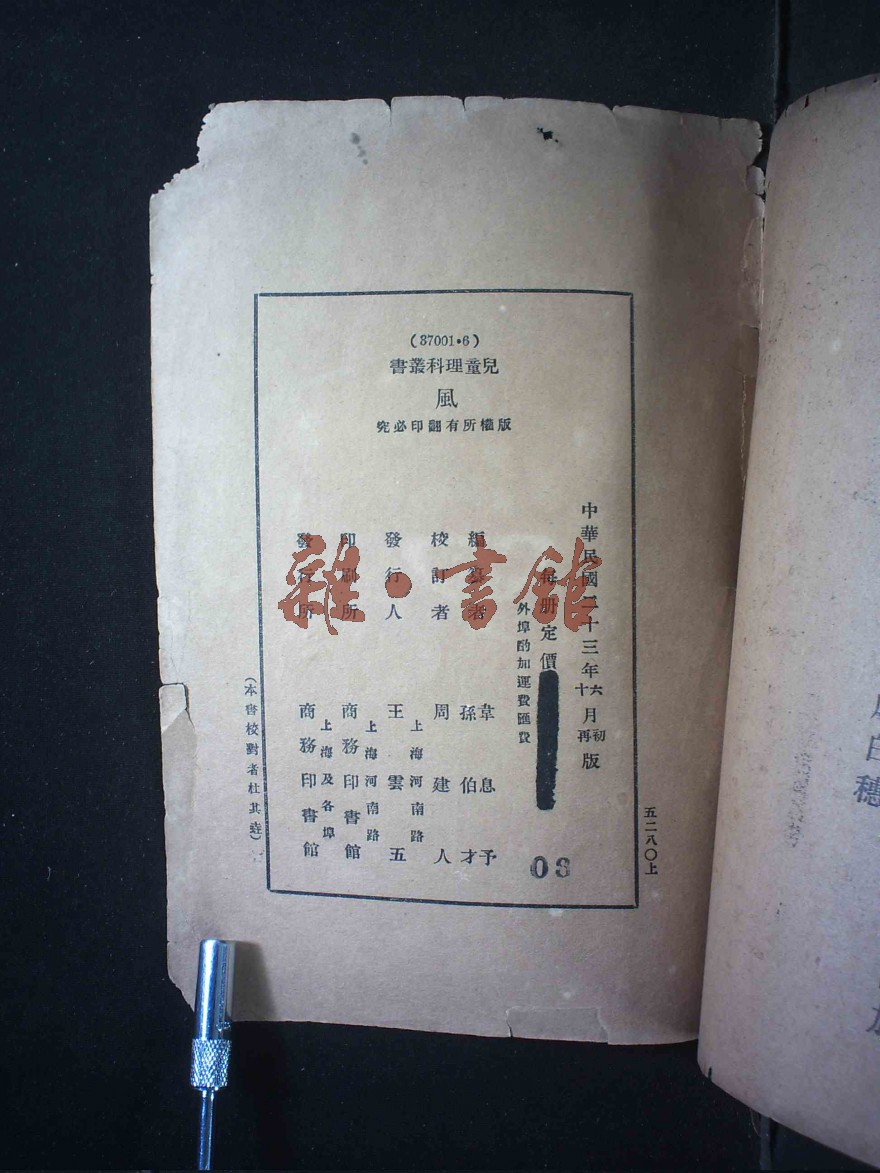 (37001·6)
書叢科理童兒
風
究必印翻有所權版
中華民國二十三年六月初版
十月再版
每册定價
外埠酌加運費匯費
編纂者
韋息予
孫伯才
校訂者
周建人
發行人
上海河南路
王雲五
印刷所
上海河南路
商務印書館
發行所
上海及各埠
商務印書館
(本書校對者杜其垚)
五二八〇上
03
雜·書館
白穗